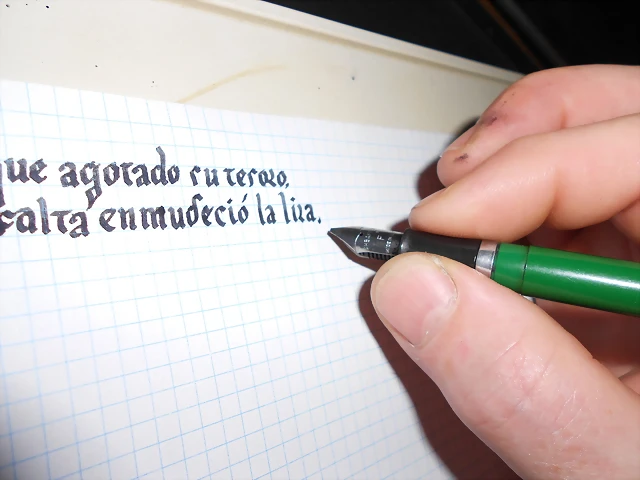 que agotado su tesoro,
falta enmudeció la lira.